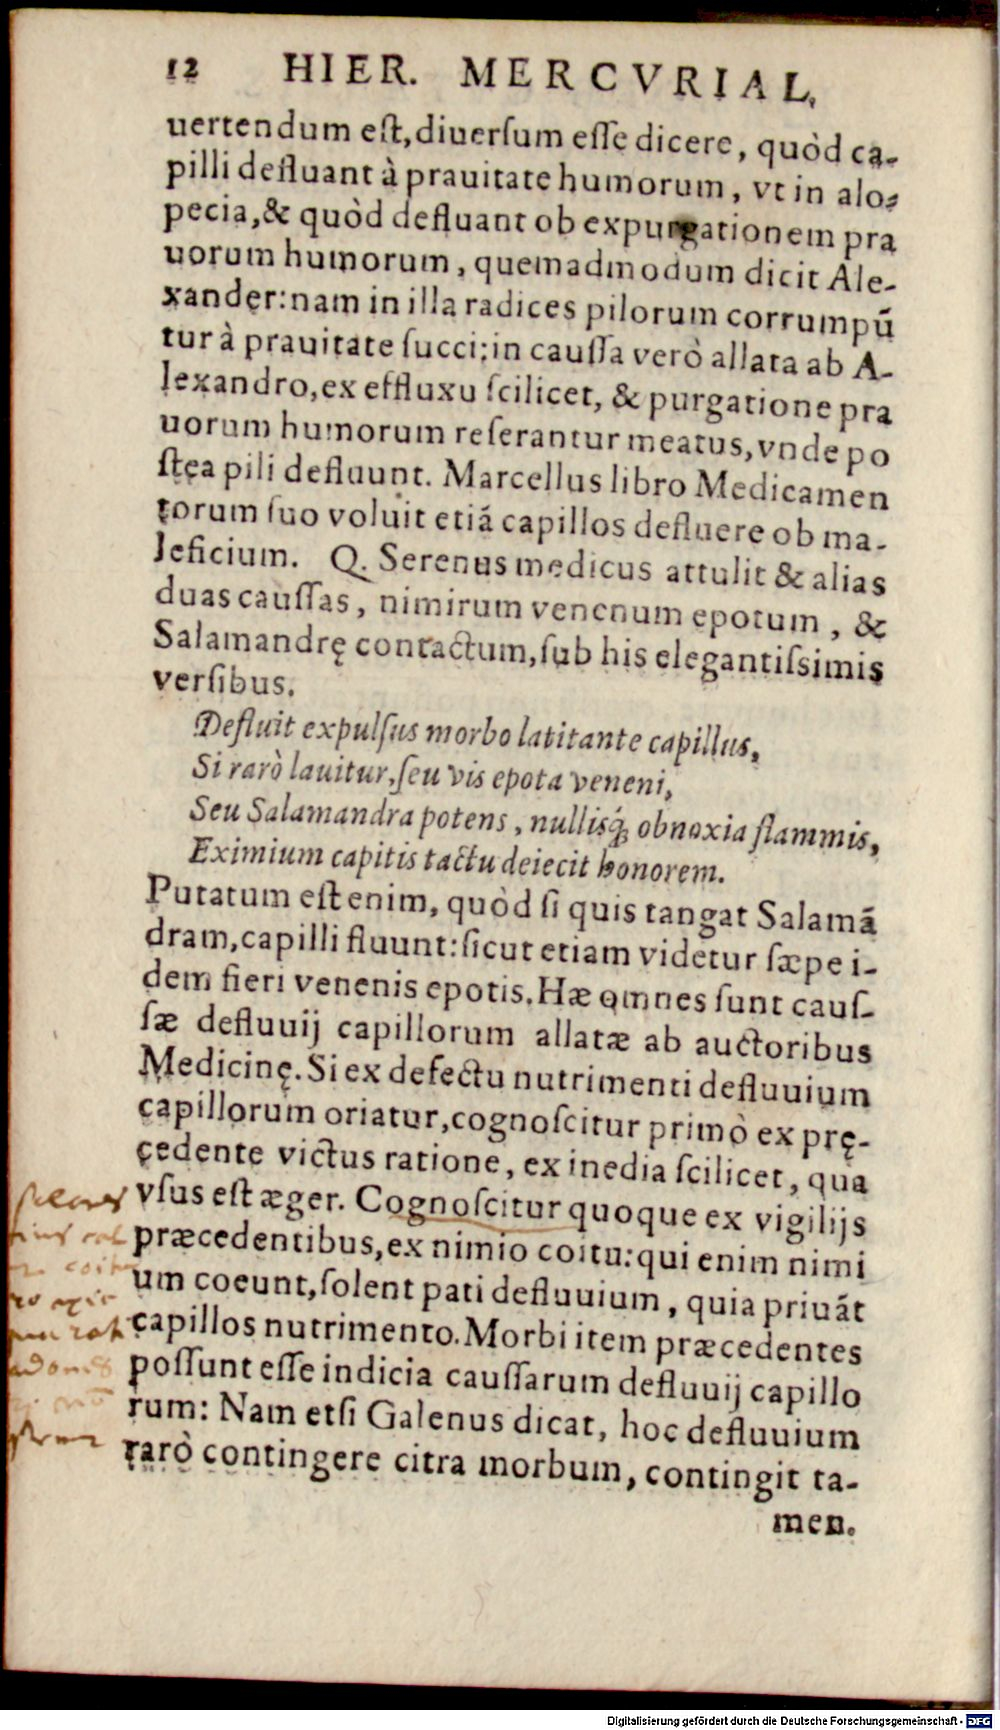 12 HIER. MERCVRIAL.
uertendum eſt, diuerſum eſſe dicere, quòd ca-
pilli defluant à prauitate humorum, vt in alo-
pecia, & quòd defluant ob expurgationem pra
uorum humorum, quemadmodum dicit Ale-
xander: nam in illa radices pilorum corrumpū
tur à prauitate ſucci: in cauſſa verò allata ab A-
lexandro, ex effluxu ſcilicet, & purgatione pra
uorum humorum reſerantur meatus, vnde po
ſtea pili defluunt. Marcellus libro Medicamen
torum ſuo voluit etiā capillos defluere ob ma-
leficium. Q. Serenus medicus attulit & alias
duas cauſſas, nimirum venenum epotum, &
Salamandrę contactum, ſub his elegantiſsimis
verſibus.
Defluit expulſus morbo latitante capillus,
Si rarò lauitur, ſeu vis epota veneni,
Seu Salamandra potens, nullisq́; obnoxia flammis,
Eximium capitis tactu deiecit honorem.
Putatum eſt enim, quòd ſi quis tangat Salamā
dram, capilli fluunt: ſicut etiam videtur ſæpe i-
dem fieri venenis epotis. Hæ omnes ſunt cauſ-
ſæ defluuij capillorum allatæ ab auctoribus
Medicinę. Si ex defectu nutrimenti defluuium
capillorum oriatur, cognoſcitur primò ex prę-
cedente victus ratione, ex inedia ſcilicet, qua
vſus eſt æger. Cognoſcitur quoque ex vigilijs
præcedentibus, ex nimio coitu: qui enim nimi
um coeunt, ſolent pati defluuium, quia priuāt
capillos nutrimento. Morbi item præcedentes
poſſunt eſſe indicia cauſſarum defluuij capillo
rum: Nam etſi Galenus dicat, hoc defluuium
rarò contingere citra morbum, contingit ta-
men.
Digitalisierung gefördert durch die Deutsche Forschungsgemeinschaft - DFG